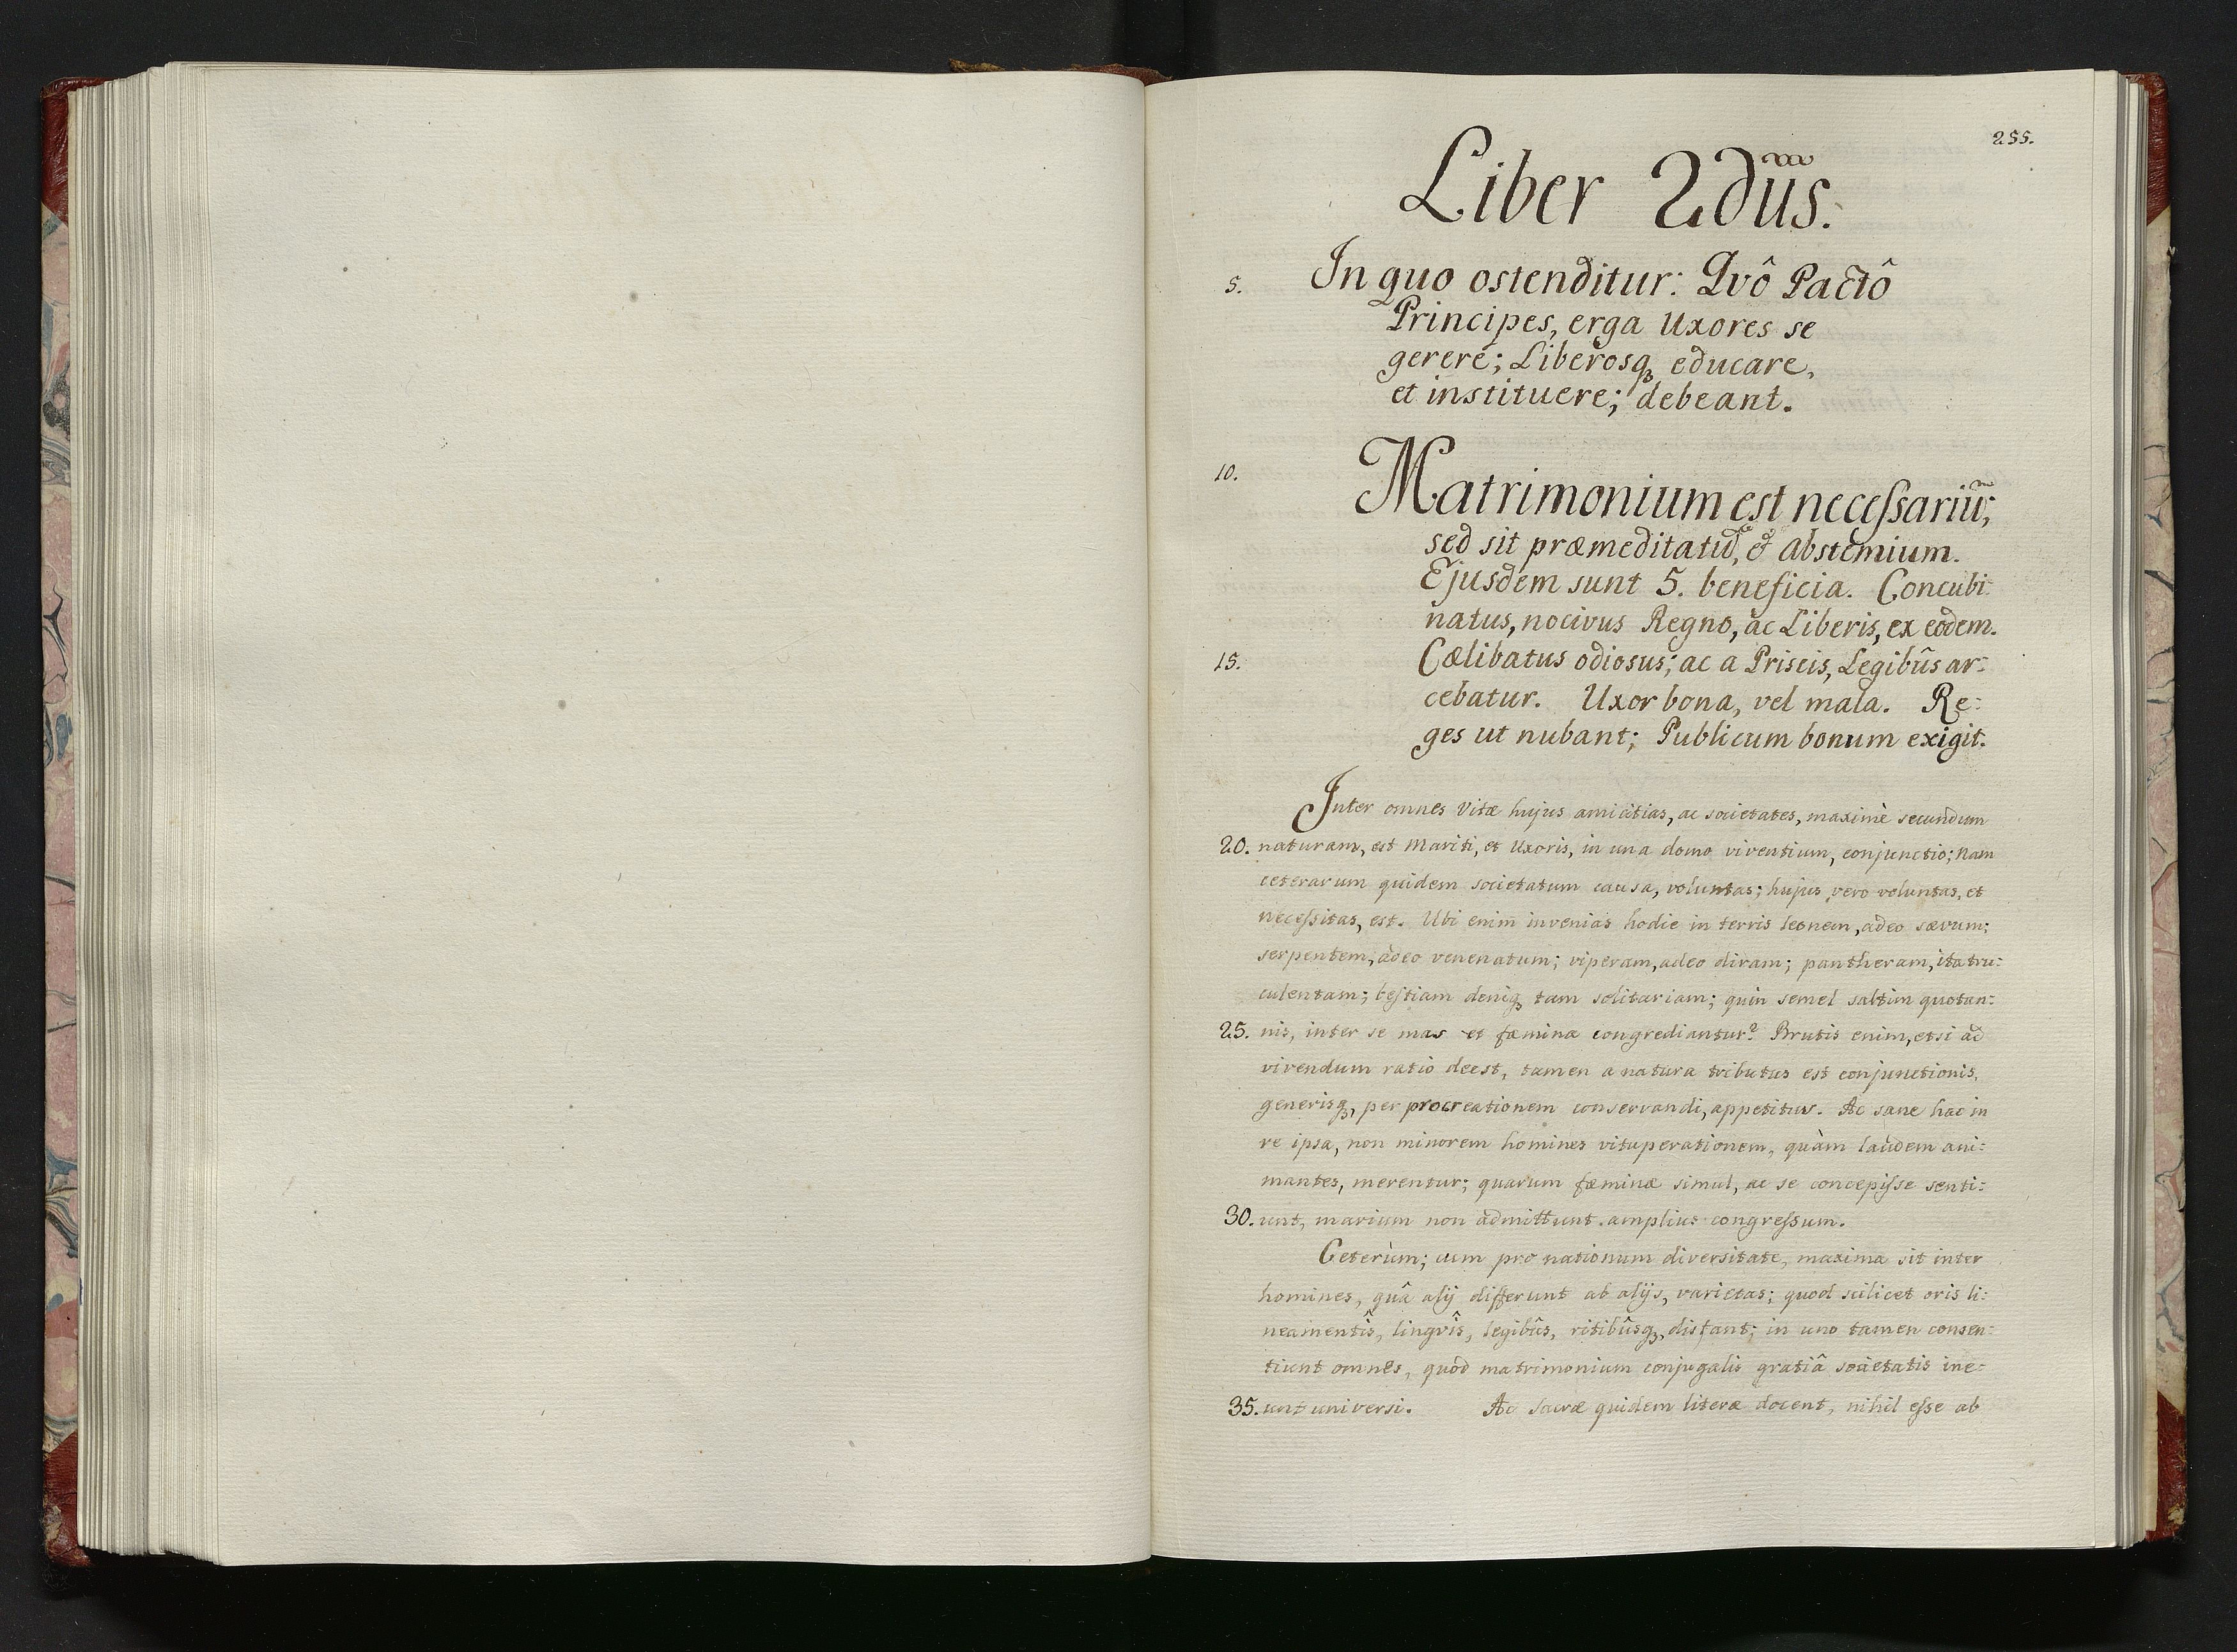 255.
Liber 2dus.
5. In quo ostenditur: Qvô Pactô
Principes, erga Uxores se
gerere; Liberosqꝫ educare,
et instituere; debeant.
10. Matrimonium est neceſsariū;
sed sit præmeditatū, & abstemium.
Ejusdem sunt 5. beneficia. Concubi:
natus, nocivus Regno, ac Liberis, ex eodem.
15. Cælibatus odiosus; ac a Priscis, Legibûs ar:
cebatur. Uxor bona, vel mala. Re:
ges ut nubant; Publicum bonum exigit.
Inter omnes Vitæ hujus amicitias, ac societates, maximè secundum
20. naturam, est Mariti, et Uxoris, in una domo viventium, conjunctio; Nam
ceterarum quidem societatum causa, voluntas; hujus vero voluntas, et
neceſsitas, est. Ubi enim invenias hodie in terris leonem, adeo sævum;
serpentem, adeo venenatum; viperam, adeo diram; pantheram, ita tru:
culentam; beſtiam deniqꝫ tam solitariam; quin semel saltim quotan:
25. nis, inter se mas et fæmina congrediantur? Brutis enim, etsi ad
vivendum ratio deest, tamen a natura tributus est conjunctionis,
generisqꝫ, per procreationem conservandi, appetitus. Ac sane hac in
re ipsa, non minorem homines vituperationem, quàm laudem ani:
mantes, merentur; quarum fæminæ simul, ac se concepiſse senti:
30. unt, marium non admittunt amplius congreſsum.
Ceterùm; cum pro nationum diversitate, maxima sit inter
homines, quâ alij differunt ab alijs, varietas; quod scilicet oris li:
neamentîs, lingvîs, legibûs, ritibûsqꝫ, diſtant; in uno tamen consen:
tiunt omnes, quòd matrimonium conjugalis gratiâ societatis ine:
35. unt universi. Ac sacræ quidem literæ docent, nihil eſse ab